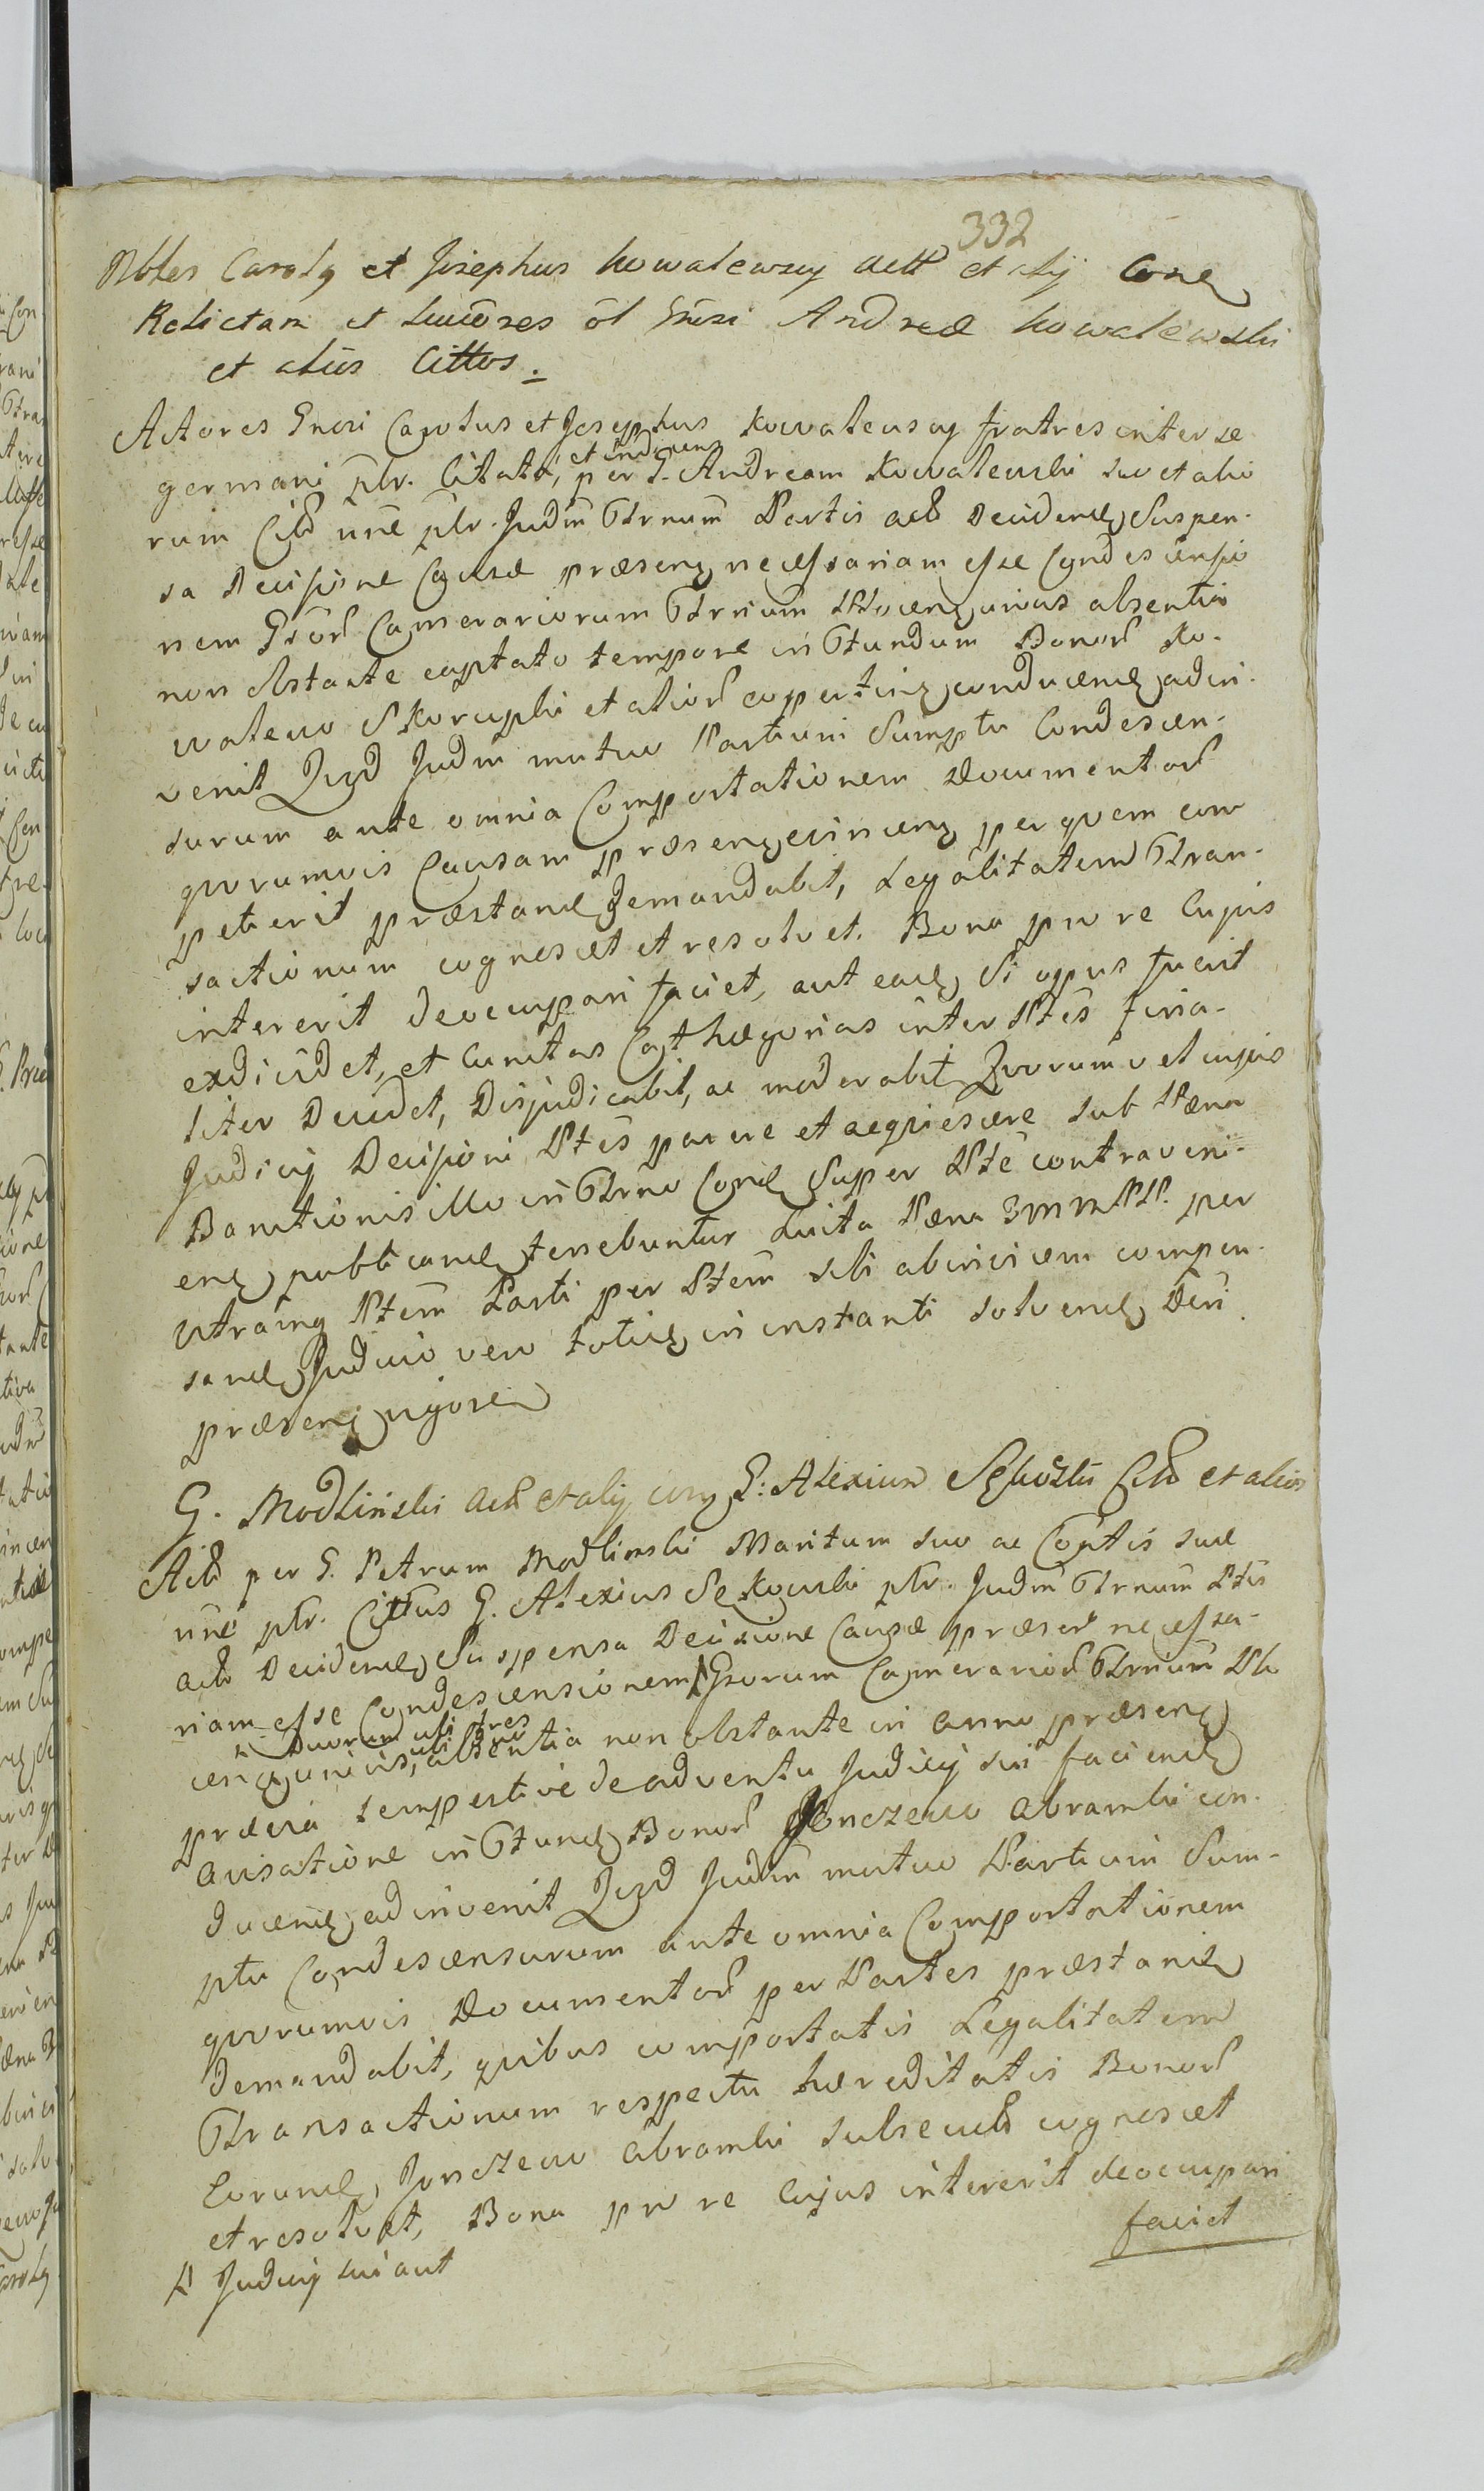 332
Nbles Carolg et Josephus Kowalewscy Actt et alij Cone
Relictam et Succores ol Gnosi Andreæ Kowalewski
et alios Cittos.
Actores Gnosi Carolus et Josephus Kowalewscy fratres inter se
germani ptr. Citati, et Inducens per G. Andream Kowalewski suo et alio
rum Citt nne ptr. Judm Trnum Partis actt Decidend Suspen-
sa Decisione Causæ præseng necessariam esse Condescensio
nem Gsor Camerariorum Trnium unius absentia
non obstante captato tempore in Fundum Bonor Ko-
walewo Skorupki et alior copertineng conducend adin-
venit Qvod Judm mutuo Partium Sumptu Condescen-
surum ante omnia Comportationem Documentor
qvorumvis Causam præseng evinceng per qvem com
petierit præstand demandabit, Legalitatem Tran-
sactionum cognoscet et resolvet. Bona pro re Cujus
intererit deoccupari faciet, aut ead Si opus fuerit
exdividet, et Cunctas Cathegorias inter Ptes fina-
liter Decidet, Disjudicabit, ac moderabit Qvorum vel cujus
Judicij Decisioni Ptes parere et acqviescere sub Pæna
Bannitionis illo in Trno Cond super Pte contraveni-
end publicand tenebuntur Luita Pæna 3 m m PP. per
Utramq Ptem Parti per Ptem sibi abinvicem compen-
sand Judicio vero totid in instanti solvend Dni
præseng vigore
G. Modlinski Actt et alij cong G: Alexium Sękowski Citt et alios
Actt per G. Petrum Modlinski Maritum suo ac Cojtis suæ
nne ptr. Cittus G. Alexius Sekowski ptr. Judm Trnum Ptis
actt Decidend Suspensa Decisione Causæ præsen necessa-
riam esse Condescensionem Gsorum Camerarior Trnium Plo
# Duorum ubi tres
ceng unius, ubi duo absentia non obstante in anno præseng
præcia tempestive de adventu Judicij sui faciend
avisatione in Fund Bonor Jonczewo Abramki con-
ducend adinvenit Qvod Judm mutuo Partium Sum-
ptu Condescensurum ante omnia Comportationem
qvorumvis Documentor per Partes præstand
demandabit, qvibus comportatis Legalitatem
Transactionum respectu hæreditatis Bonor
Eorund, Jonczewo Abramki subsecutt cognoscet
et resolvet, Bona pro re Cujus intererit deoccupari
faciet
# Judicij sui aut